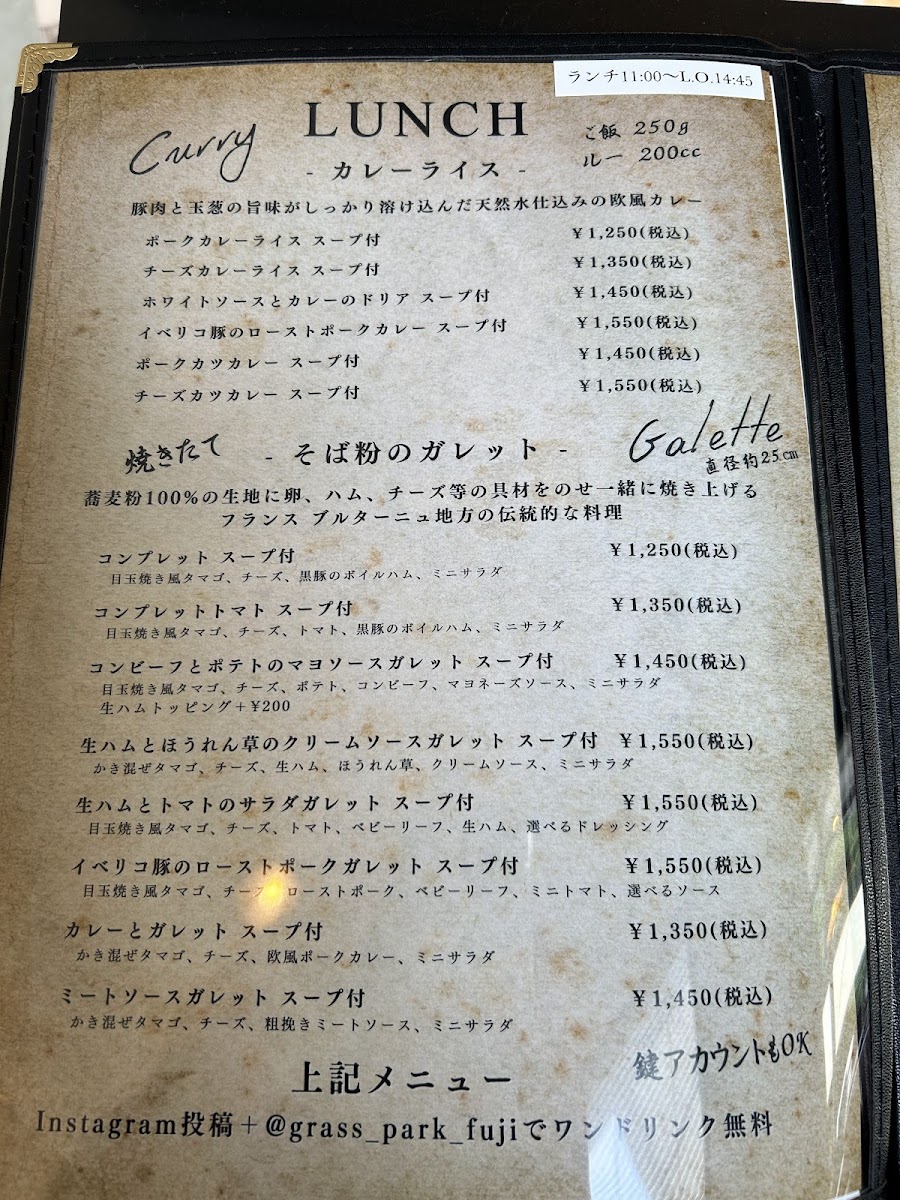 ランチ11:00〜L.O.14:45
LUNCH
Curry
ご飯 250g
ルー 200cc
- カレーライス -
豚肉と玉葱の旨味がしっかり溶け込んだ天然水仕込みの欧風カレー
ポークカレーライス スープ付 ￥1,250(税込)
チーズカレーライス スープ付 ￥1,350(税込)
ホワイトソースとカレーのドリア スープ付 ￥1,450(税込)
イベリコ豚のローストポークカレー スープ付 ￥1,550(税込)
ポークカツカレー スープ付 ￥1,450(税込)
チーズカツカレー スープ付 ￥1,550(税込)
焼きたて - そば粉のガレット - Galette
直径約25cm
蕎麦粉100%の生地に卵、ハム、チーズ等の具材をのせ一緒に焼き上げる
フランス ブルターニュ地方の伝統的な料理
コンプレット スープ付 ￥1,250(税込)
目玉焼き風タマゴ、チーズ、黒豚のボイルハム、ミニサラダ
コンプレットトマト スープ付 ￥1,350(税込)
目玉焼き風タマゴ、チーズ、トマト、黒豚のボイルハム、ミニサラダ
コンビーフとポテトのマヨソースガレット スープ付 ￥1,450(税込)
目玉焼き風タマゴ、チーズ、ポテト、コンビーフ、マヨネーズソース、ミニサラダ
生ハムトッピング＋¥200
生ハムとほうれん草のクリームソースガレット スープ付 ￥1,550(税込)
かき混ぜタマゴ、チーズ、生ハム、ほうれん草、クリームソース、ミニサラダ
生ハムとトマトのサラダガレット スープ付 ￥1,550(税込)
目玉焼き風タマゴ、チーズ、トマト、ベビーリーフ、生ハム、選べるドレッシング
イベリコ豚のローストポークガレット スープ付 ￥1,550(税込)
目玉焼き風タマゴ、チーズ、ローストポーク、ベビーリーフ、ミニトマト、選べるソース
カレーとガレット スープ付 ￥1,350(税込)
かき混ぜタマゴ、チーズ、欧風ポークカレー、ミニサラダ
ミートソースガレット スープ付 ￥1,450(税込)
かき混ぜタマゴ、チーズ、粗挽きミートソース、ミニサラダ
上記メニュー
鍵アカウントもOK
Instagram投稿＋@grass_park_fujiでワンドリンク無料